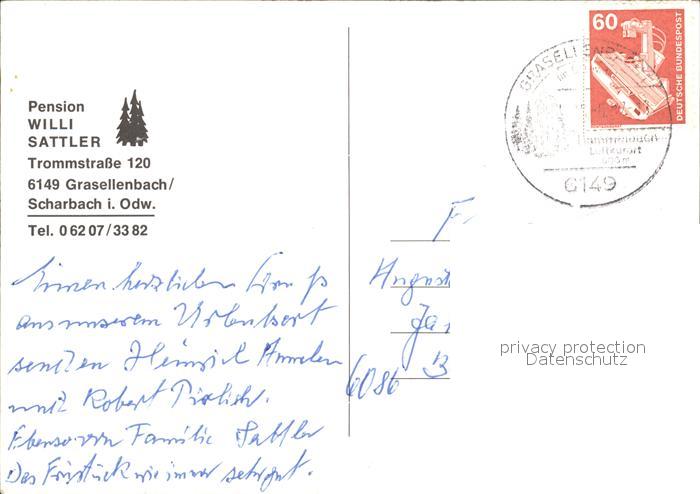 Pension
WILLI
SATTLER
Trommstraße 120
6149 Grasellenbach/
Scharbach i. Odw.
Tel. 0 62 07/33 82
60
DEUTSCHE BUNDESPOST
GRASELLENB
Luftkurort
6149
Einen herzlichen Gruß
aus unserem Urlaubsort
senden Heinrich
und Robert
Ebenso von Familie Sattler
Das Fristück wie immer sehr gut.
F
August
Ja
6086 B
privacy protection
Datenschutz